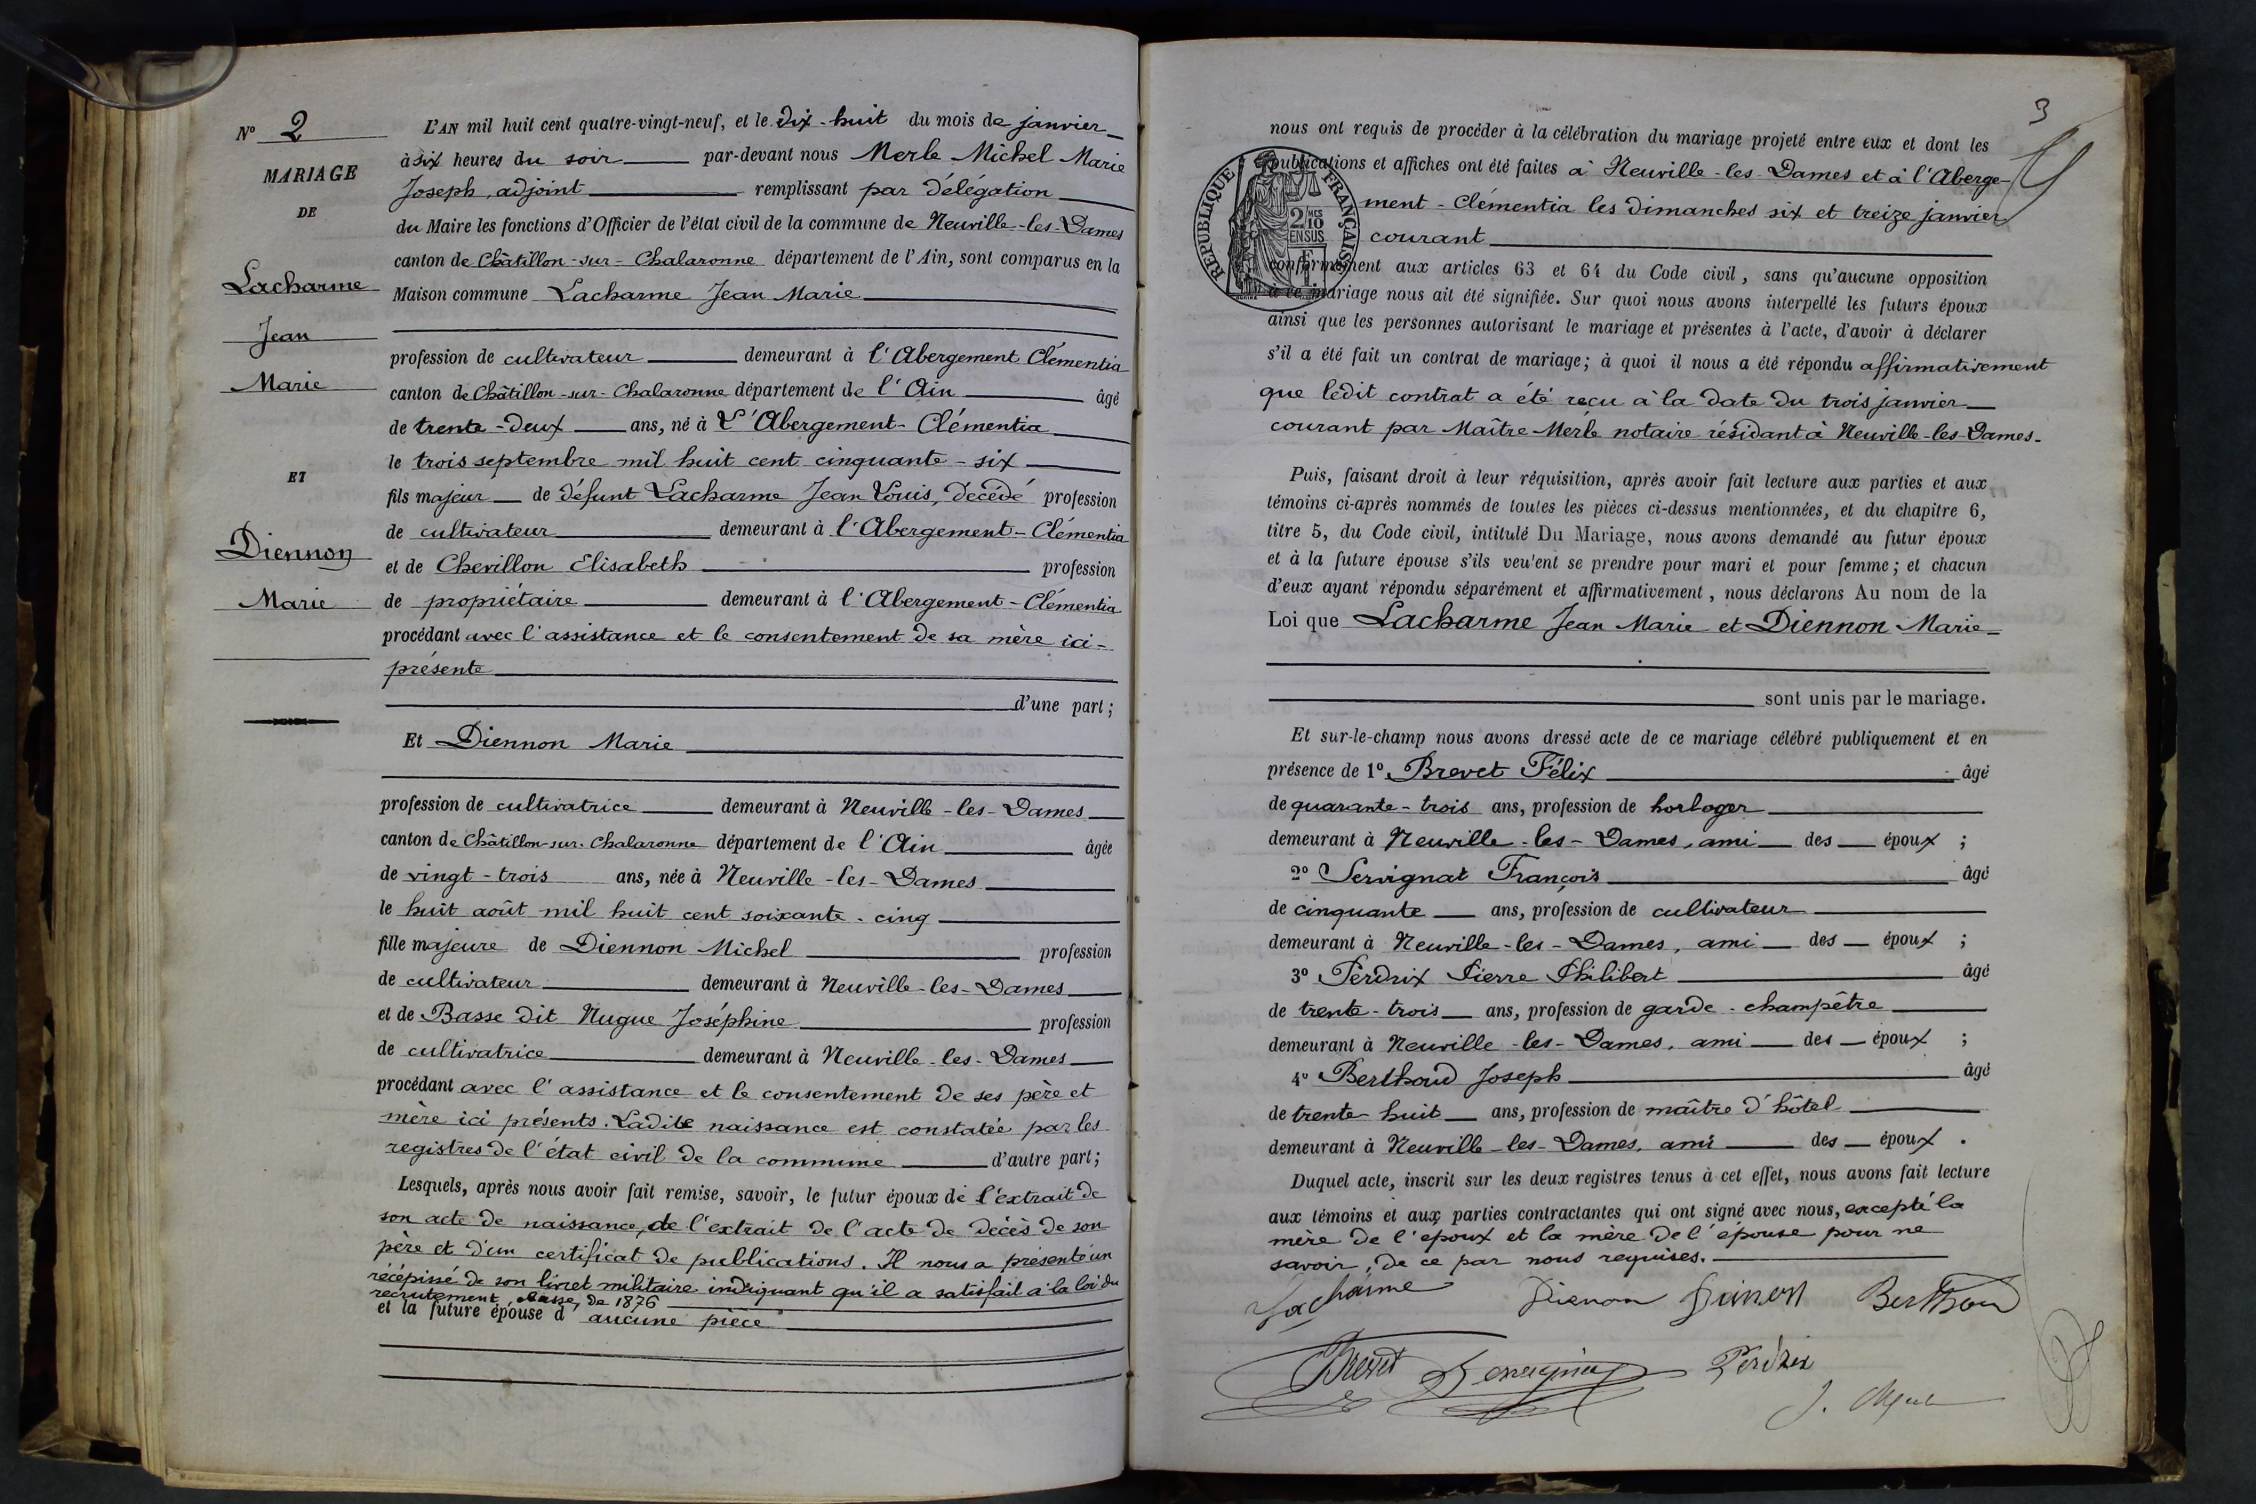 N° 2
MARIAGE
DE
Lacharme
Jean
Marie
ET
Diennon
Marie
L'AN mil huit cent quatre-vingt-neuf, et le dix-huit du mois de janvier
à six heures du soir par-devant nous Merle Michel Marie
Joseph, adjoint remplissant par délégation
du Maire les fonctions d'Officier de l'état civil de la commune de Neuville-les-Dames
canton de Châtillon-sur-Chalaronne département de l'Ain, sont comparus en la
Maison commune Lacharme Jean Marie
profession de cultivateur demeurant à l'Abergement Clémentia
canton de Châtillon-sur-Chalaronne département de l'Ain âgé
de trente-deux ans, né à L'Abergement-Clémentia
le trois septembre mil huit cent cinquante-six
fils majeur de défunt Lacharme Jean Louis, décédé profession
de cultivateur demeurant à l'Abergement-Clémentia
et de Chevillon Elisabeth profession
de propriétaire demeurant à l'Abergement-Clémentia
procédant avec l'assistance et le consentement de sa mère ici-
présente
d'une part;
Et Diennon Marie
profession de cultivatrice demeurant à Neuville-les-Dames
canton de Châtillon-sur-Chalaronne département de l'Ain âgée
de vingt-trois ans, née à Neuville-les-Dames
le huit août mil huit cent soixante-cinq
fille majeure de Diennon Michel profession
de cultivateur demeurant à Neuville-les-Dames
et de Basse dit Nugue Joséphine profession
de cultivatrice demeurant à Neuville-les-Dames
procédant avec l'assistance et le consentement de ses père et
mère ici présents. Ladite naissance est constatée par les
registres de l'état civil de la commune d'autre part;
Lesquels, après nous avoir fait remise, savoir, le futur époux de l'extrait de
son acte de naissance, de l'extrait de l'acte de décès de son
père et d'un certificat de publications. Il nous a présenté un
récépissé de son livret militaire indiquant qu'il a satisfait à la loi du
recrutement, classe, de 1876
et la future épouse d'aucune pièce
3
nous ont requis de procéder à la célébration du mariage projeté entre eux et dont les
publications et affiches ont été faites à Neuville-les-Dames et à l'Aberge-
ment-Clémentia les dimanches six et treize janvier
courant
RÉPUBLIQUE FRANÇAISE
2 MES
10
EN SUS
conformément aux articles 63 et 64 du Code civil, sans qu'aucune opposition
à ce mariage nous ait été signifiée. Sur quoi nous avons interpellé les futurs époux
ainsi que les personnes autorisant le mariage et présentes à l'acte, d'avoir à déclarer
s'il a été fait un contrat de mariage; à quoi il nous a été répondu affirmativement
que ledit contrat a été reçu à la date du trois janvier
courant par Maître Merle notaire résidant à Neuville-les-Dames.
Puis, faisant droit à leur réquisition, après avoir fait lecture aux parties et aux
témoins ci-après nommés de toutes les pièces ci-dessus mentionnées, et du chapitre 6,
titre 5, du Code civil, intitulé Du Mariage, nous avons demandé au futur époux
et à la future épouse s'ils veu'ent se prendre pour mari et pour femme; et chacun
d'eux ayant répondu séparément et affirmativement, nous déclarons Au nom de la
Loi que Lacharme Jean Marie et Diennon Marie
sont unis par le mariage.
Et sur-le-champ nous avons dressé acte de ce mariage célébré publiquement et en
présence de 1° Brevet Félix âgé
de quarante-trois ans, profession de horloger
demeurant à Neuville-les-Dames, ami des époux;
2° Servignat François âgé
de cinquante ans, profession de cultivateur
demeurant à Neuville-les-Dames, ami des époux;
3° Perdrix Pierre Philibert âgé
de trente-trois ans, profession de garde-champêtre
demeurant à Neuville-les-Dames, ami des époux;
4° Berthoud Joseph âgé
de trente huit ans, profession de maître d'hôtel
demeurant à Neuville-les-Dames, ami des époux.
Duquel acte, inscrit sur les deux registres tenus à cet effet, nous avons fait lecture
aux témoins et aux parties contractantes qui ont signé avec nous, excepté la
mère de l'époux et la mère de l'épouse pour ne
savoir, de ce par nous requises.
Lacharme Dienon Berthoud
Brevet Perdrix